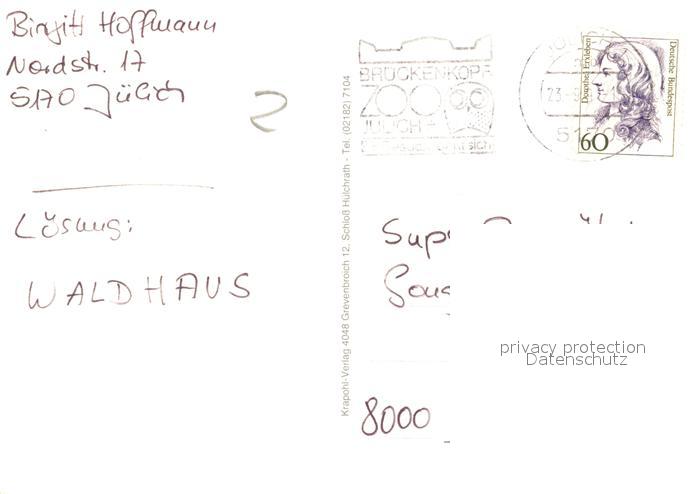 Birgitt Hoffmann
Nordstr. 17
5170 Jülich
2
Lösung:
WALDHAUS
Krapohl-Verlag 4048 Grevenbroich 12, Schloß Hülchrath - Tel. (02182) 7104
BRÜCKENKOPF
ZOO
JÜLICH
5170
Dorothea Erxleben
Deutsche Bundespost
60
Sup
8000
privacy protection
Datenschutz